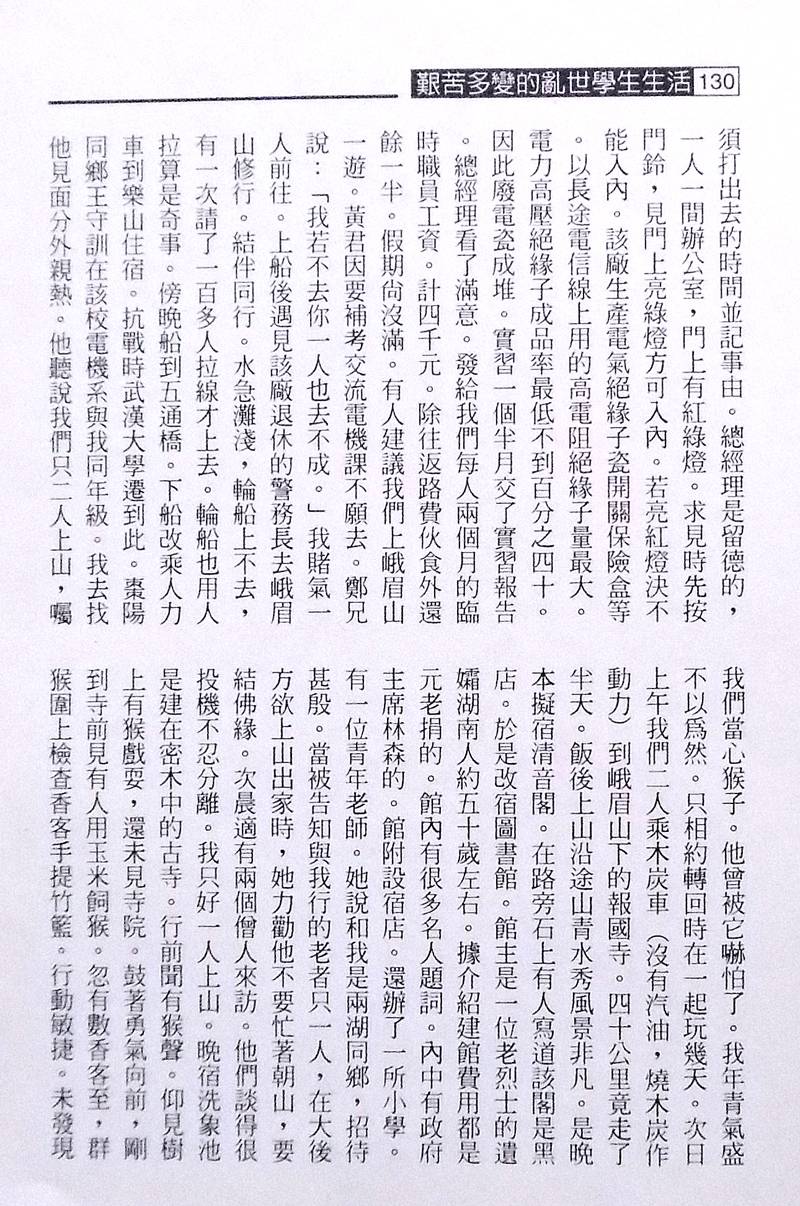 艱苦多變的亂世學生生活 130
須打出去的時間並記事由。總經理是留德的，
一人一間辦公室，門上有紅綠燈。求見時先按
門鈴，見門上亮綠燈方可入內。若亮紅燈決不
能入內。該廠生產電氣絕緣子瓷開關保險盒等
。以長途電信線上用的高電阻絕緣子量最大。
電力高壓絕緣子成品率最低不到百分之四十。
因此廢電瓷成堆。實習一個半月交了實習報告
。總經理看了滿意。發給我們每人兩個月的臨
時職員工資。計四千元。除往返路費伙食外還
餘一半。假期尚沒滿。有人建議我們上峨眉山
一遊。黃君因要補考交流電機課不願去。鄭兄
說：「我若不去你一人也去不成。」我賭氣一
人前往。上船後遇見該廠退休的警務長去峨眉
山修行。結伴同行。水急灘淺，輪船上不去，
有一次請了一百多人拉線才上去。輪船也用人
拉算是奇事。傍晚船到五通橋。下船改乘人力
車到樂山住宿。抗戰時武漢大學遷到此。棗陽
同鄉王守訓在該校電機系與我同年級。我去找
他見面分外親熱。他聽說我們只二人上山，囑
我們當心猴子。他曾被它嚇怕了。我年青氣盛
不以為然。只相約轉回時在一起玩幾天。次日
上午我們二人乘木炭車（沒有汽油，燒木炭作
動力）到峨眉山下的報國寺。四十公里竟走了
半天。飯後上山沿途山青水秀風景非凡。是晚
本擬宿清音閣。在路旁石上有人寫道該閣是黑
店。於是改宿圖書館。館主是一位老烈士的遺
孀湖南人約五十歲左右。據介紹建館費用都是
元老捐的。館內有很多名人題詞。內中有政府
主席林森的。館附設宿店。還辦了一所小學。
有一位青年老師。她說和我是兩湖同鄉，招待
甚殷。當被告知與我行的老者只一人，在大後
方欲上山出家時，她力勸他不要忙著朝山，要
結佛緣。次晨適有兩個僧人來訪。他們談得很
投機不忍分離。我只好一人上山。晚宿洗象池
是建在密木中的古寺。行前聞有猴聲。仰見樹
上有猴戲耍，還未見寺院。鼓著勇氣向前，剛
到寺前見有人用玉米飼猴。忽有數香客至，群
猴圍上檢查香客手提竹籃。行動敏捷。未發現